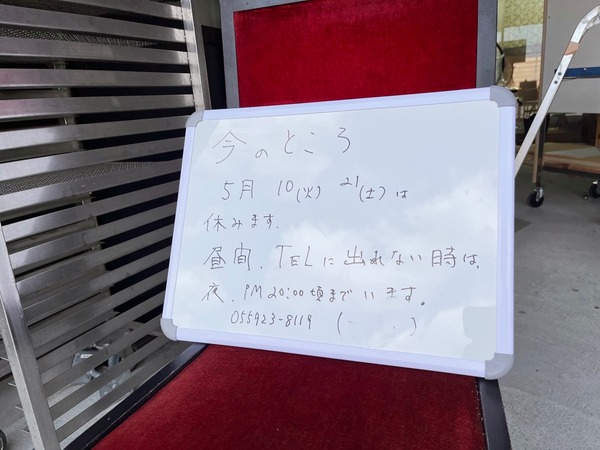 今のところ
5月 10(火) 21(土)は
休みます.
昼間、TELに出れない時は、
夜、PM 20:00頃まで います。
055923-8119 (
)